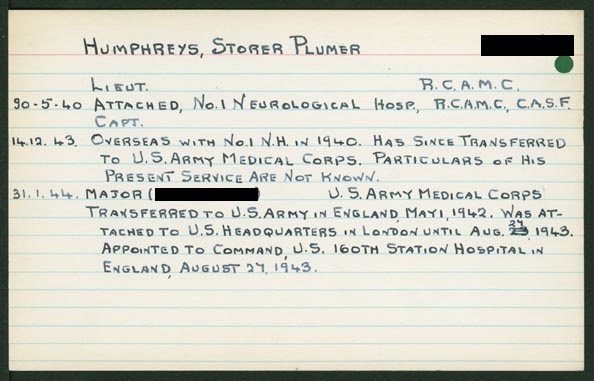 HUMPHREYS, STORER PLUMER
LIEUT. R.C.A.M.C.
30-5-40 ATTACHED, NO.1 NEUROLOGICAL HOSP., R.C.A.M.C., C.A.S.F.
CAPT.
14.12.43. OVERSEAS WITH NO.1 N.H. IN 1940. HAS SINCE TRANSFERRED
TO U.S. ARMY MEDICAL CORPS. PARTICULARS OF HIS
PRESENT SERVICE ARE NOT KNOWN.
31.1.44. MAJOR ( ) U.S. ARMY MEDICAL CORPS
TRANSFERRED TO U.S. ARMY IN ENGLAND, MAY 1, 1942. WAS AT-
TACHED TO U.S. HEADQUARTERS IN LONDON UNTIL AUG. 27 1943.
APPOINTED TO COMMAND, U.S. 160TH STATION HOSPITAL IN
ENGLAND, AUGUST 27, 1943.